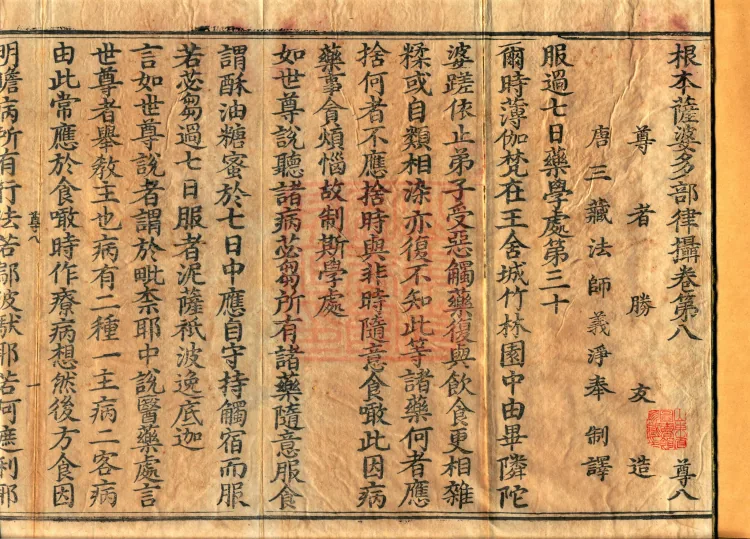 根本薩婆多部律攝卷第八 尊八
尊者勝友造
唐三藏法師義淨奉制譯
服過七日藥學處第三十
爾時薄伽梵在王舍城竹林園中由畢隣陀
婆蹉依止弟子受惡觸藥復與飲食更相雜
糅或自類相染亦復不知此等諸藥何者應
捨何者不應捨時與非時隨意食噉此因病
藥事貪煩惱故制斯學處
如世尊說聽諸病苾芻所有諸藥隨意服食
謂酥油糖蜜於七日中應自守持觸宿而服
若苾芻過七日服者泥薩祇波逸底迦
言如世尊說者謂於毗柰耶中說醫藥處言
世尊者舉教主也病有二種一主病二客病
由此常應於食噉時作療病想然後方食因
尊八 一
明瞻病所有行法若鄔波馱耶若阿遮利耶